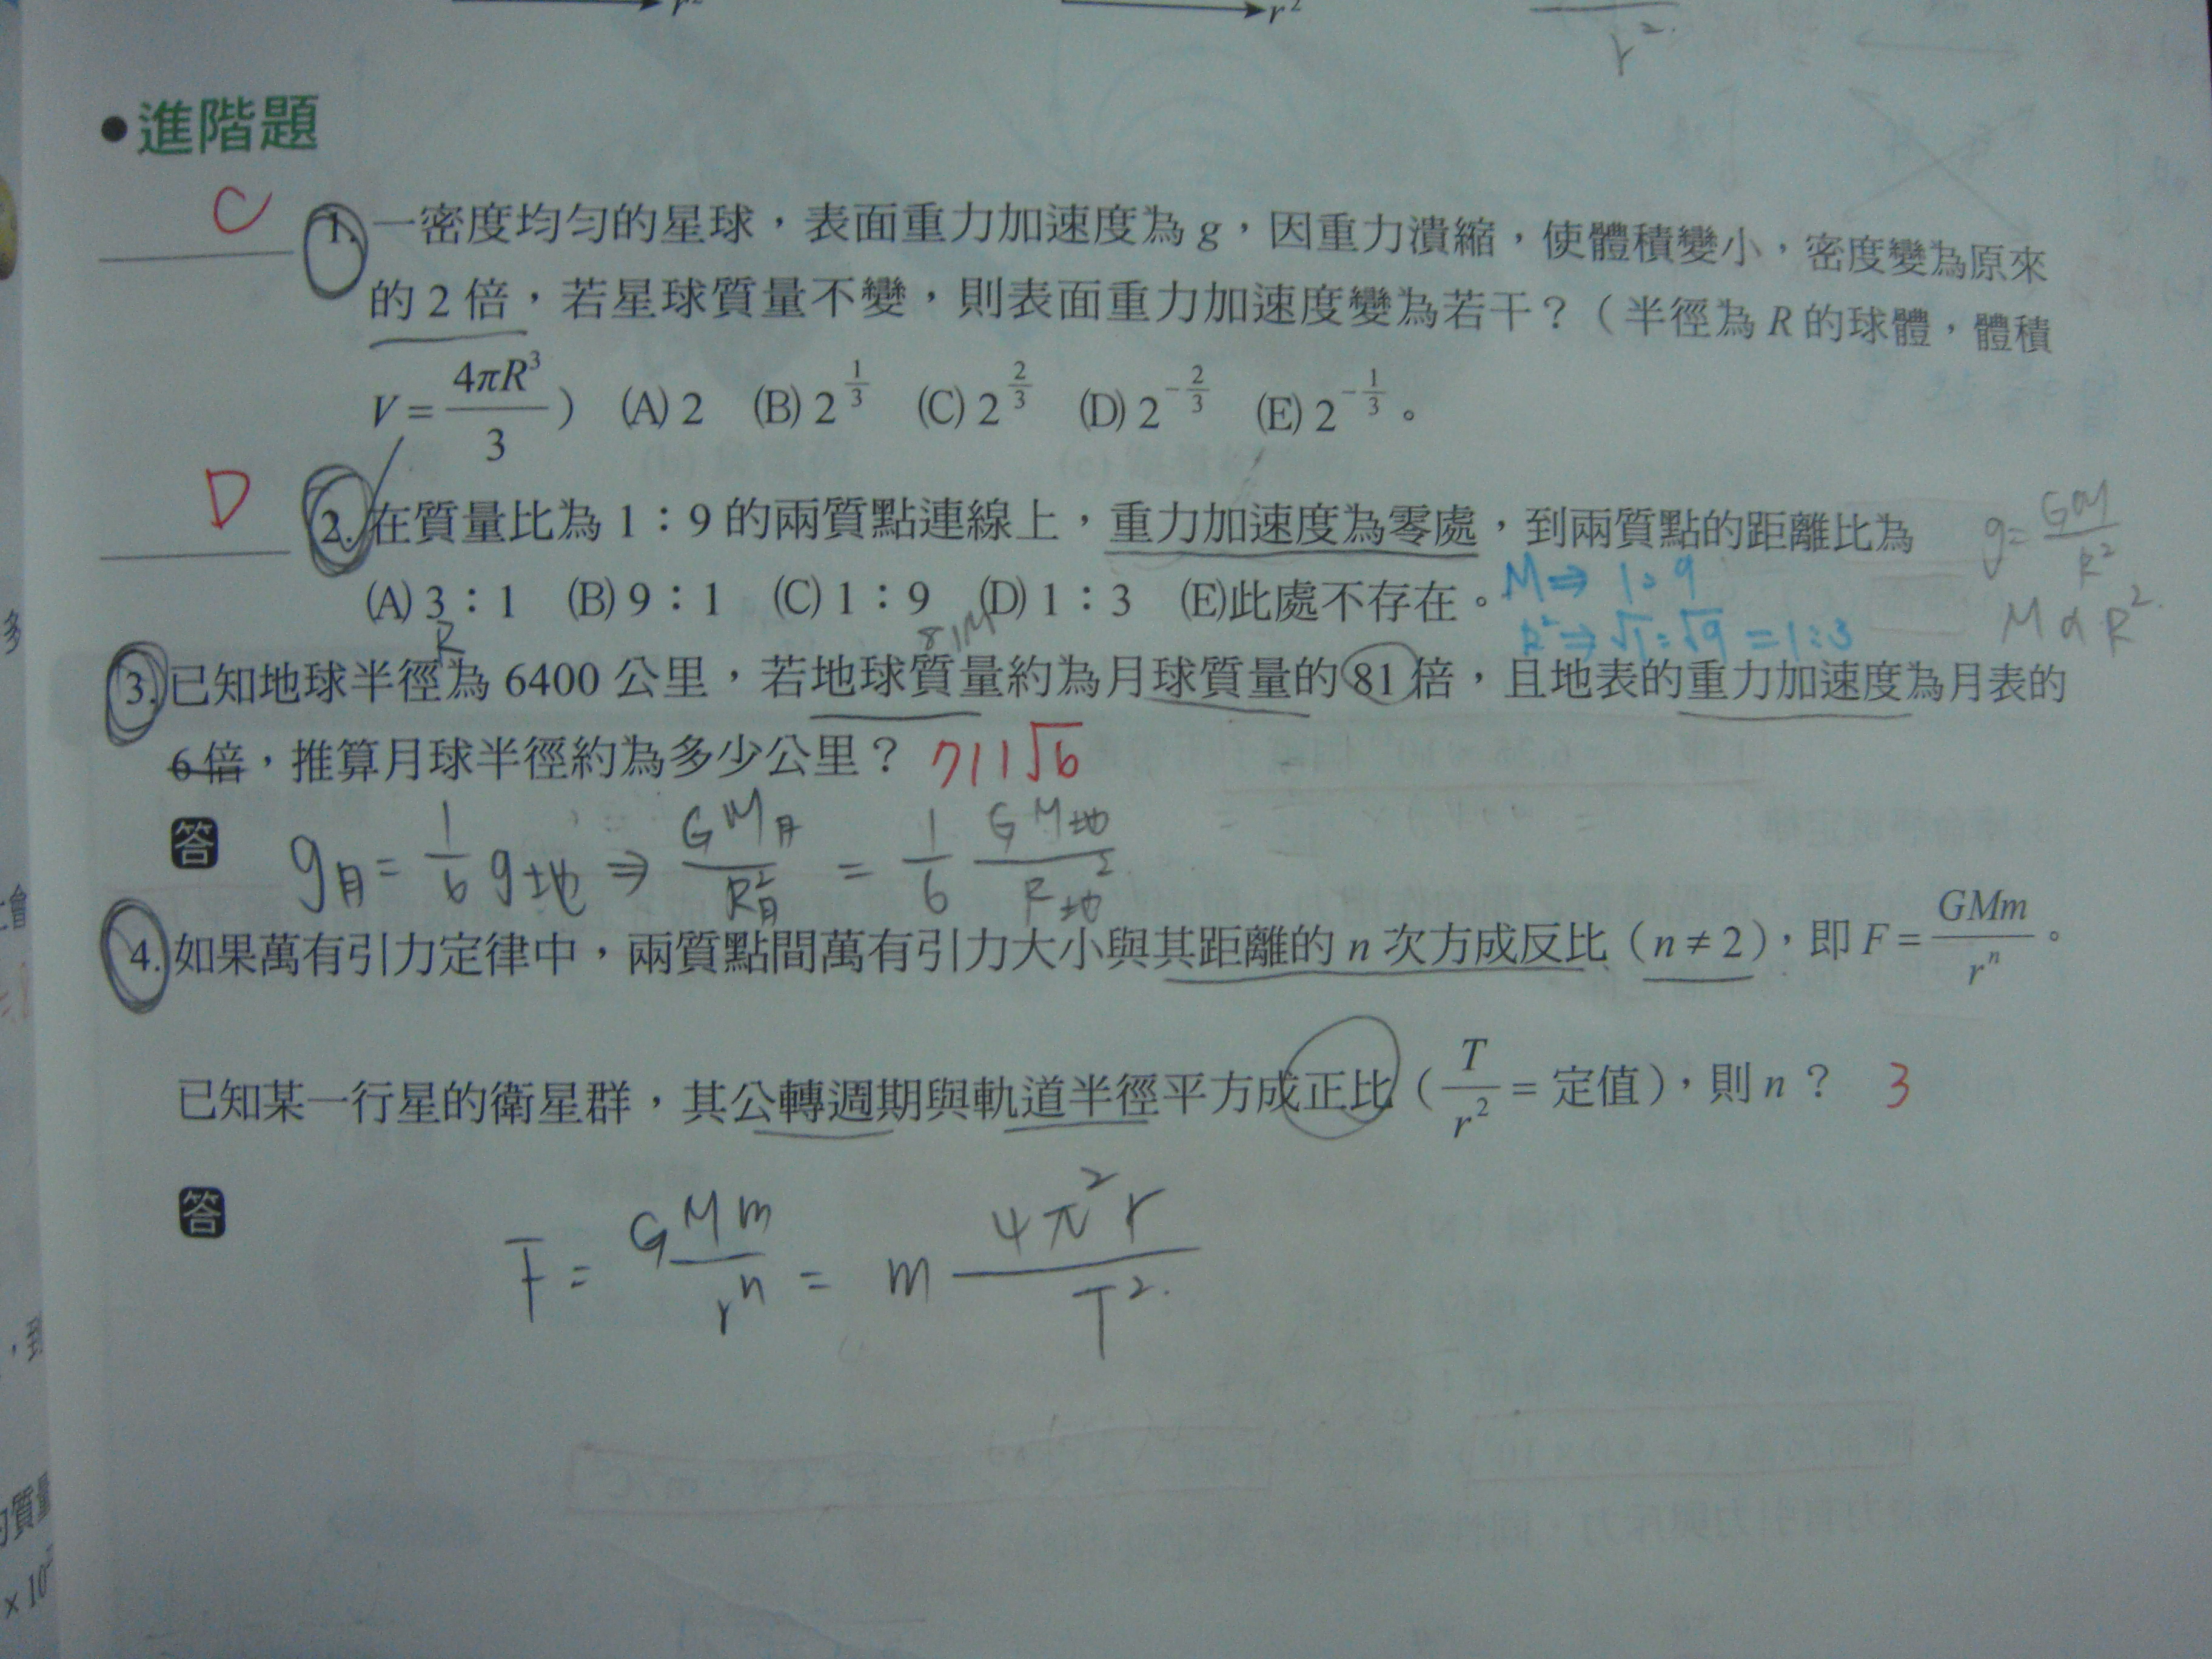 r²
r²
r².
•進階題
C
1. 一密度均勻的星球，表面重力加速度為 g，因重力潰縮，使體積變小，密度變為原來
的 2 倍，若星球質量不變，則表面重力加速度變為若干？（半徑為 R 的球體，體積
V = 4πR³/3） (A) 2 (B) 2^(1/3) (C) 2^(2/3) (D) 2^(-2/3) (E) 2^(-1/3)。
D
2. 在質量比為 1：9 的兩質點連線上，重力加速度為零處，到兩質點的距離比為
g = GM/R²
(A) 3：1 (B) 9：1 (C) 1：9 (D) 1：3 (E)此處不存在。
M ⇒ 1:9
R² ⇒ √1:√9 = 1:3
M α R².
R
81M
3. 已知地球半徑為 6400 公里，若地球質量約為月球質量的 81 倍，且地表的重力加速度為月表的
6 倍，推算月球半徑約為多少公里？ 711√6
答 g月 = 1/6 g地 ⇒ GM月/R月² = 1/6 GM地/R地²
4. 如果萬有引力定律中，兩質點間萬有引力大小與其距離的 n 次方成反比（n ≠ 2），即 F = GMm/rⁿ。
已知某一行星的衛星群，其公轉週期與軌道半徑平方成正比（T/r² = 定值），則 n？ 3
答
F = GMm/rⁿ = m 4π²r/T².
多
會
，到
的質量
× 10